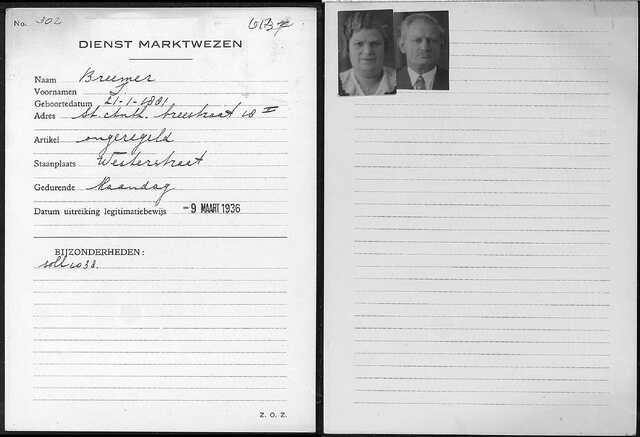 No. 302
DIENST MARKTWEZEN
Naam Breemer
Voornamen
Geboortedatum 21-1-1881
Adres St. Anth. breestraat 18 II
Artikel ongeregeld
Staanplaats Westerstraat
Gedurende Maandag
Datum uitreiking legitimatiebewijs - 9 MAART 1936
BIJZONDERHEDEN:
Z. O. Z.